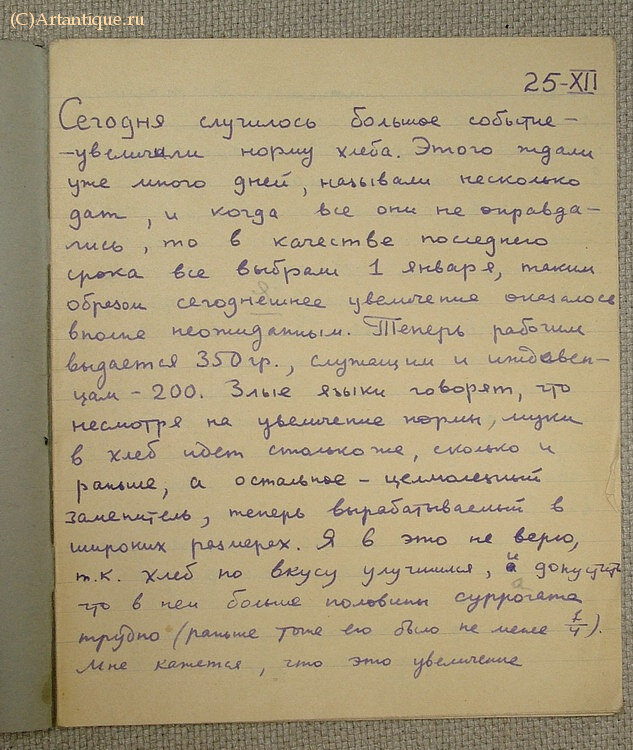 (C)Artantique.ru
25-XII
Сегодня случилось большое событие -
-увеличили норму хлеба. Этого ждали
уже много дней, называли несколько
дат, и когда все они не оправда-
лись, то в качестве последнего
срока все выбрали 1 января, таким
образом сегодняшнее увеличение оказалось
вполне неожиданным. Теперь рабочим
выдается 350 гр., служащим и иждевен-
цам - 200. Злые языки говорят, что
несмотря на увеличение нормы, муки
в хлеб идет столько же, сколько и
раньше, а остальное - целлюлозный
заменитель, теперь вырабатываемый в
широких размерах. Я в это не верю,
т.к. хлеб по вкусу улучшился, и допустить
что в нем больше половины суррогата
трудно (раньше тоже его было не менее 1/4).
Мне кажется, что это увеличение